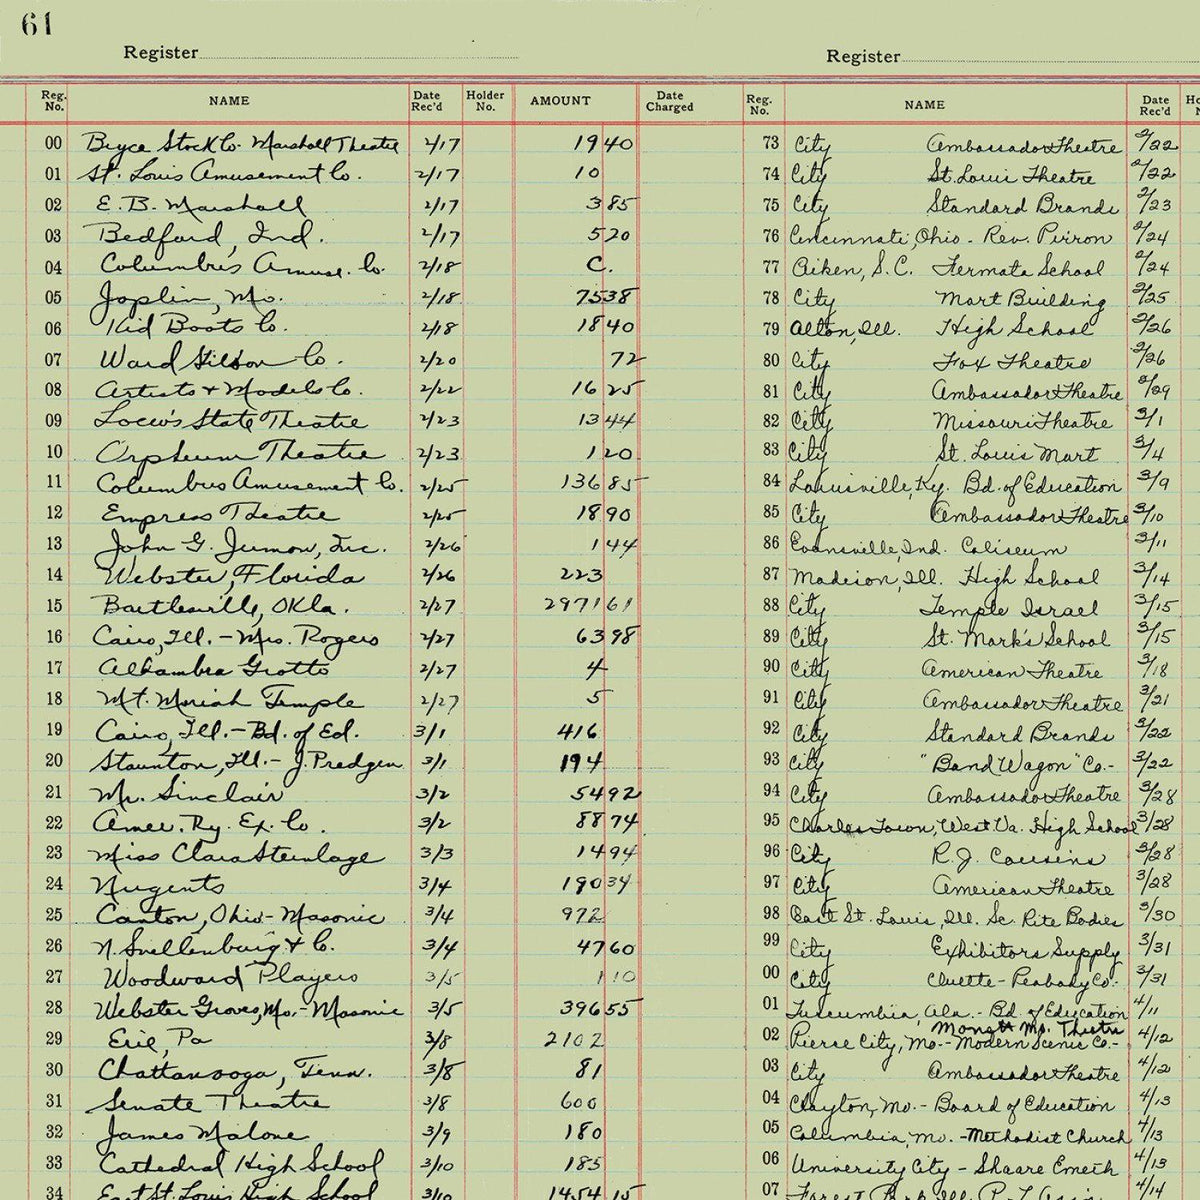 61
Register
Reg. No. NAME Date Rec'd Holder No. AMOUNT Date Charged
00 Bryce Stock Co. Marshall Theatre 2/17 19 40
01 St. Louis Amusement Co. 2/17 10
02 E. B. Marshall 2/17 3 85
03 Bedford, Ind. 2/17 520
04 Columbus Amuse. Co. 2/18 C.
05 Joplin, Mo. 2/18 75 38
06 Kid Boots Co. 2/18 18 40
07 Ward Co. 2/20 72
08 Artists & Models Co. 2/22 16 25
09 Loew's State Theatre 2/23 13 44
10 Orpheum Theatre 2/23 1 20
11 Columbus Amusement Co. 2/25 136 85
12 Empress Theatre 2/25 18 90
13 John G. Inc. 2/26 1 44
14 Webster, Florida 2/26 223
15 Bartlesville, Okla. 2/27 2971 61
16 Cairo, Ill. - Mrs. Rogers 2/27 63 98
17 Alhambra Grotto 2/27 4
18 Mt. Moriah Temple 2/27 5
19 Cairo, Ill. - Bd. of Ed. 3/1 416
20 Staunton, Ill. - J. Predgen 3/1 194
21 Mr. Sinclair 3/2 54 92
22 Amer. Ry. Ex. Co. 3/2 88 74
23 Miss Clara Steinlage 3/3 14 94
24 Nugents 3/4 190 34
25 Canton, Ohio - Masonic 3/4 972
26 N. Snellenburg & Co. 3/4 47 60
27 Woodward Players 3/5 1 10
28 Webster Groves, Mo. - Masonic 3/5 396 55
29 Erie, Pa 3/8 2102
30 Chattanooga, Tenn. 3/8 81
31 Senate Theatre 3/8 600
32 James Malone 3/9 180
33 Cathedral High School 3/10 185
34 East St. Louis High School 3/10 1454 15
Register
Reg. No. NAME Date Rec'd
73 City Ambassador Theatre 2/22
74 City St. Louis Theatre 2/22
75 City Standard Brands 2/23
76 Cincinnati, Ohio - Rev. 2/24
77 Aiken, S.C. Fermata School 2/24
78 City Mart Building 2/25
79 Alton, Ill. High School 2/26
80 City Fox Theatre 2/26
81 City Ambassador Theatre 2/29
82 City Missouri Theatre 3/1
83 City St. Louis Mart 3/4
84 Louisville, Ky. Bd. of Education 3/9
85 City Ambassador Theatre 3/10
86 Evansville, Ind. Coliseum 3/11
87 Madison, Ill. High School 3/14
88 City Temple Israel 3/15
89 City St. Mark's School 3/15
90 City American Theatre 3/18
91 City Ambassador Theatre 3/21
92 City Standard Brands 3/22
93 City "Band Wagon" Co. - 3/22
94 City Ambassador Theatre 3/28
95 Charles Town, West Va. High School 3/28
96 City R. J. Cousins 3/28
97 City American Theatre 3/28
98 East St. Louis, Ill. Sc. Rite Bodies 3/30
99 City Exhibitors Supply 3/31
00 City Cluette - Peabody Co. - 3/31
01 Tuscumbia, Ala. - Bd. of Education 4/11
02 Pierce City, Mo. - Modern Scenic Co. - 4/12
03 City Ambassador Theatre 4/12
04 Clayton, Mo. - Board of Education 4/13
05 Columbia, Mo. - Methodist Church 4/13
06 University City - Shaare Emeth 4/13
07 Forest 4/14